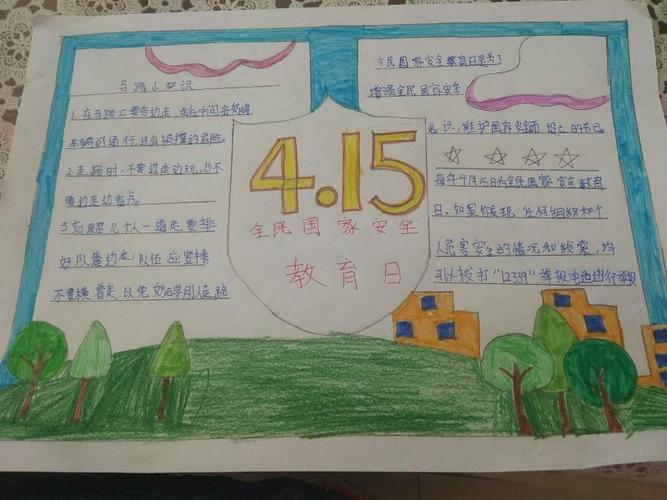 马路小知识
1.在马路上要靠边走,走中间会妨碍
车辆的通行,还有被撞的危险.
2.走路时,不要边走边玩,也不
要边走边看书。
3.如果几个人一道走要排
好队靠边走,队伍应直排
不要横着走,以免妨碍别人走路
4.15
全民国家安全
教育日
全民国家安全教育日是为了
增强全民国家安全
意识,维护国家安全而设立的节日.
每年4月15日为全民国家安全教育
日.如果发现任何组织和个
人危害安全的情况和线索,均
可以拨打"12339"举报电话进行举报